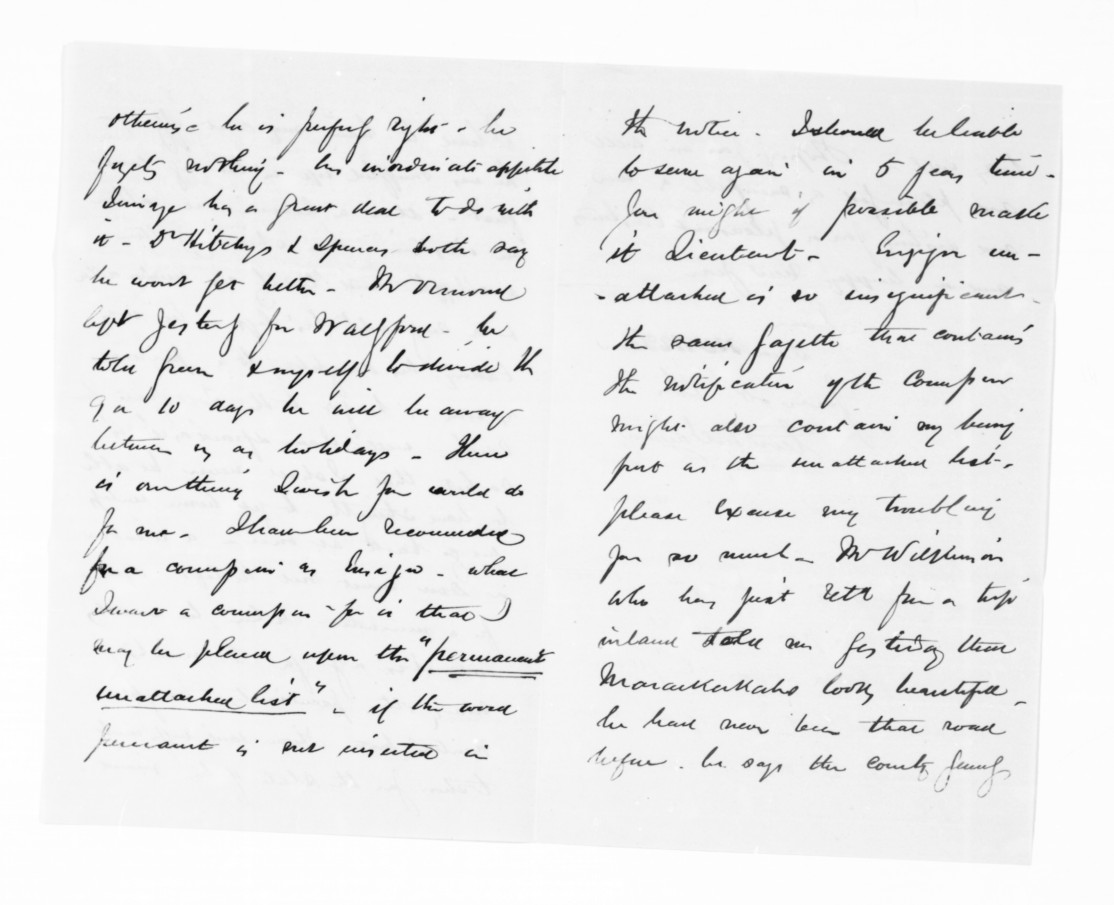 otherwise he is perfectly right - he
forgets nothing - his inordinate appetite
I imagine has a great deal to do with
it - Dr Hitchings & Spencer both say
he wont get better - Mr Ormond
left yesterday for Wallingford - he
told Green & myself to divide the
9 or 10 days he will be away
between us as holidays - There
is one thing I wish you would do
for me. I have been recommended
for a commission as Ensign - what
I want a commission for is that I
may be placed upon the "permanent
unattached list" - if the word
permanent is not inserted in
the notice - I should be liable
to serve again in 5 years time -
You might if possible make
it Lieutenant - Ensign un-
-attached is so insignificant -
the same Gazette that contains
the notification of the Commission
might also contain my being
put on the unattached list -
please excuse my troubling
you so much - Mr Wilkinson
who has just retd from a trip
inland told me yesterday that
Maraekakaho looks beautiful,
he had never been that road
before. he says the country generally